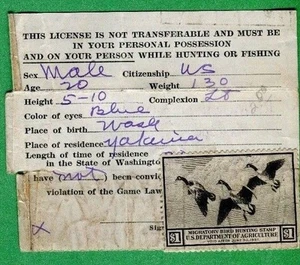 THIS LICENSE IS NOT TRANSFERABLE AND MUST BE
IN YOUR PERSONAL POSSESSION
AND ON YOUR PERSON WHILE HUNTING OR FISHING
Sex Male Citizenship US
Age 20 Weight 130
Height 5-10 Complexion Lt
Color of eyes Blue
Place of birth Wash
Place of residence Yakima
Length of time of residence
in the State of Washington
have not been convic
violation of the Game Law
X Sig
$1 MIGRATORY BIRD HUNTING STAMP $1
U.S. DEPARTMENT OF AGRICULTURE